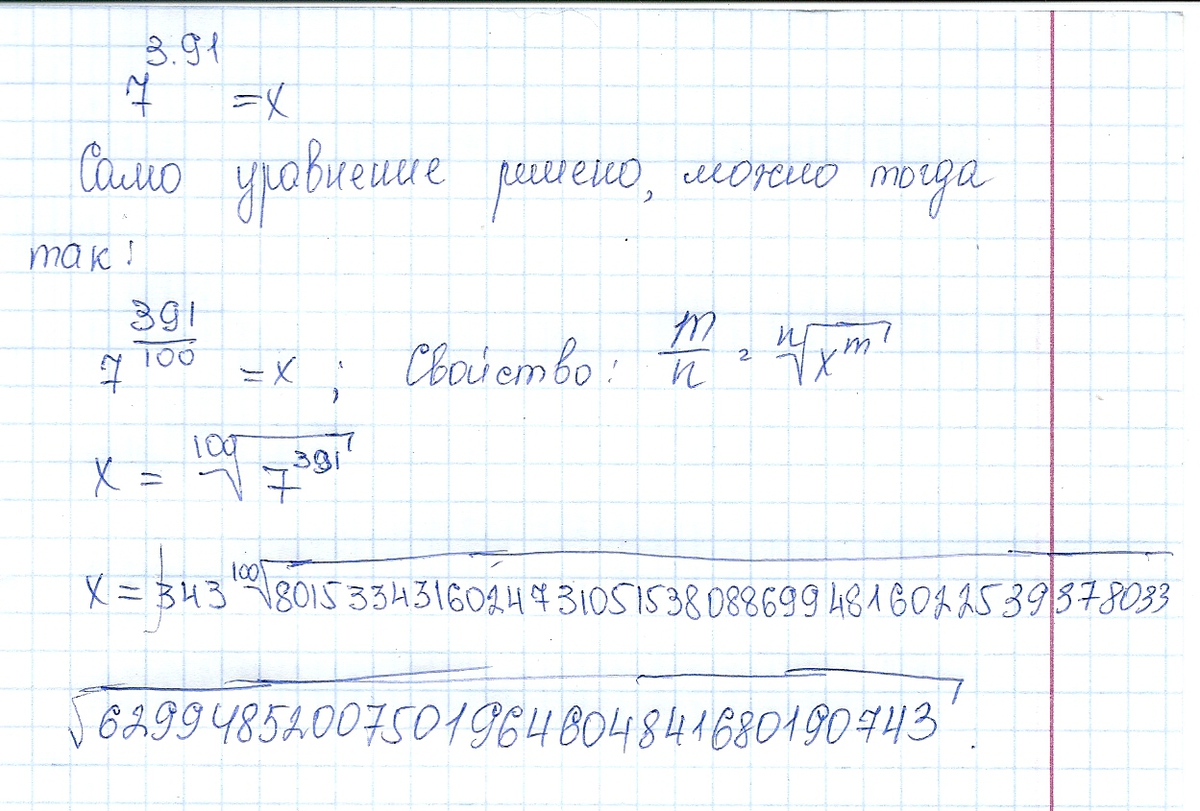 7^3.91 = x
Само уравнение решено, можно тогда
так:
7^(391/100) = x ; Свойство: m/n = ⁿ√x^m
x = ¹⁰⁰√7^391
x = 343 ¹⁰⁰√80153343160247310515380886994816022539378033
√62994852007501964604841680190743.